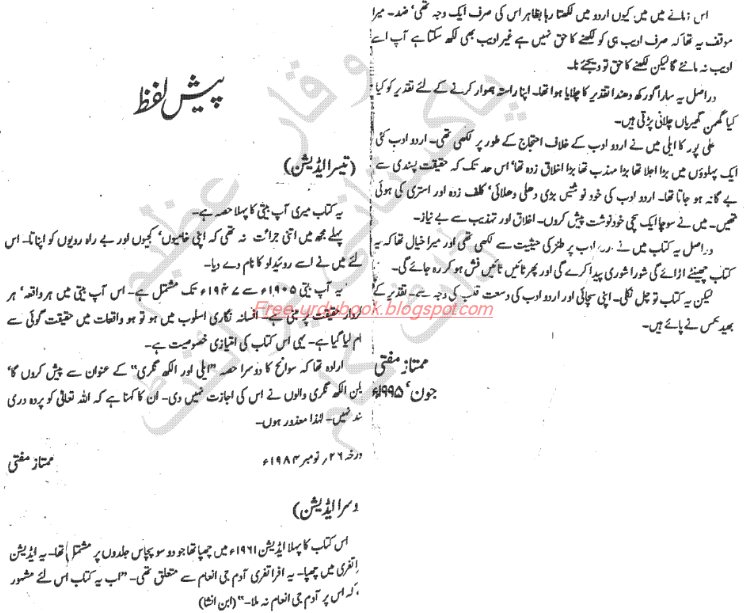 پیش لفظ
(تیسرا ایڈیشن)
یہ کتاب میری آپ بیتی کا پہلا حصہ ہے۔
پہلے مجھ میں اتنی جرائت نہ تھی کہ اپنی خامیوں، کجیوں اور بے راہ رویوں کو اپناتا۔ اس
لئے میں نے اسے روئیداد کا نام دے دیا۔
یہ آپ بیتی ۱۹۰۵ء سے ۱۹۴۷ء تک مشتمل ہے۔ اس آپ بیتی میں ہر واقعہ، ہر
کردار حقیقت پر مبنی ہے۔ افسانہ نگاری اسلوب میں ہو تو ہو واقعات میں حقیقت گوئی سے
ام لیا گیا ہے۔ یہی اس کتاب کی امتیازی خصوصیت ہے۔
ارادہ تھا کہ سوانح کا دوسرا حصہ "ایلی اور الکھ نگری" کے عنوان سے پیش کروں گا،
یکن الکھ نگری والوں نے اس کی اجازت نہیں دی۔ ان کا کہنا ہے کہ اللہ تعالی کو پردہ دری
ند نہیں۔ لہذا معذور ہوں۔
ورخہ ۲۶ / نومبر ۱۹۸۴ء
ممتاز مفتی
وسرا ایڈیشن)
اس کتاب کا پہلا ایڈیشن ۱۹۶۱ء میں چھپا تھا جو دو سو پچاس جلدوں پر مشتمل تھا۔ یہ ایڈیشن
تفری میں چھپا۔ یہ افراتفری آدم جی انعام سے متعلق تھی۔ "اب یہ کتاب اس لئے مشہور
، کہ اس پر آدم جی انعام نہ ملا۔" (ابن انشا)
اس زمانے میں میں کیوں اردو میں لکھتا رہا بظاہر اس کی صرف ایک وجہ تھی، ضد۔ میرا
موقف یہ تھا کہ صرف ادیب ہی کو لکھنے کا حق نہیں ہے غیر ادیب بھی لکھ سکتا ہے آپ اسے
ادیب نہ مانئے گا لیکن لکھنے کا حق تو دیجئے نا۔
دراصل یہ سارا گورکھ دھندا تقدیر کا چلایا ہوا تھا۔ اپنا راستہ ہموار کرنے کے لئے تقدیر کو کیا
کیا گھمن گھیریاں چلانی پڑتی ہیں۔
علی پور کا ایلی میں نے اردو ادب کے خلاف احتجاج کے طور پر لکھی تھی۔ اردو ادب کئی
ایک پہلوؤں میں بڑا اجلا تھا بڑا مہذب تھا بڑا اخلاق زدہ تھا، اس حد تک کہ حقیقت پسندی سے
بے گانہ ہو جاتا تھا۔ اردو ادب کی خود نوشتیں بڑی دھلی دھلائی، کلف زدہ اور استری کی ہوئی
تھیں۔ میں نے سوچا ایک سچی خودنوشت پیش کروں۔ اخلاق اور تہذیب سے بے نیاز۔
دراصل یہ کتاب میں نے ادب پر طنز کی حیثیت سے لکھی تھی اور میرا خیال تھا کہ یہ
کتاب چھینٹے اڑائے گی شورا شوری پیدا کرے گی اور پھر ٹائیں ٹائیں فش ہو کر رہ جائے گی۔
لیکن یہ کتاب تو چل نکلی۔ اپنی سچائی اور اردو ادب کی وسعت قلب کی وجہ سے تقدیر کے
بھید کس نے پائے ہیں۔
ممتاز مفتی
جون، ۱۹۹۵ء
Free.urdubook.blogspot.com